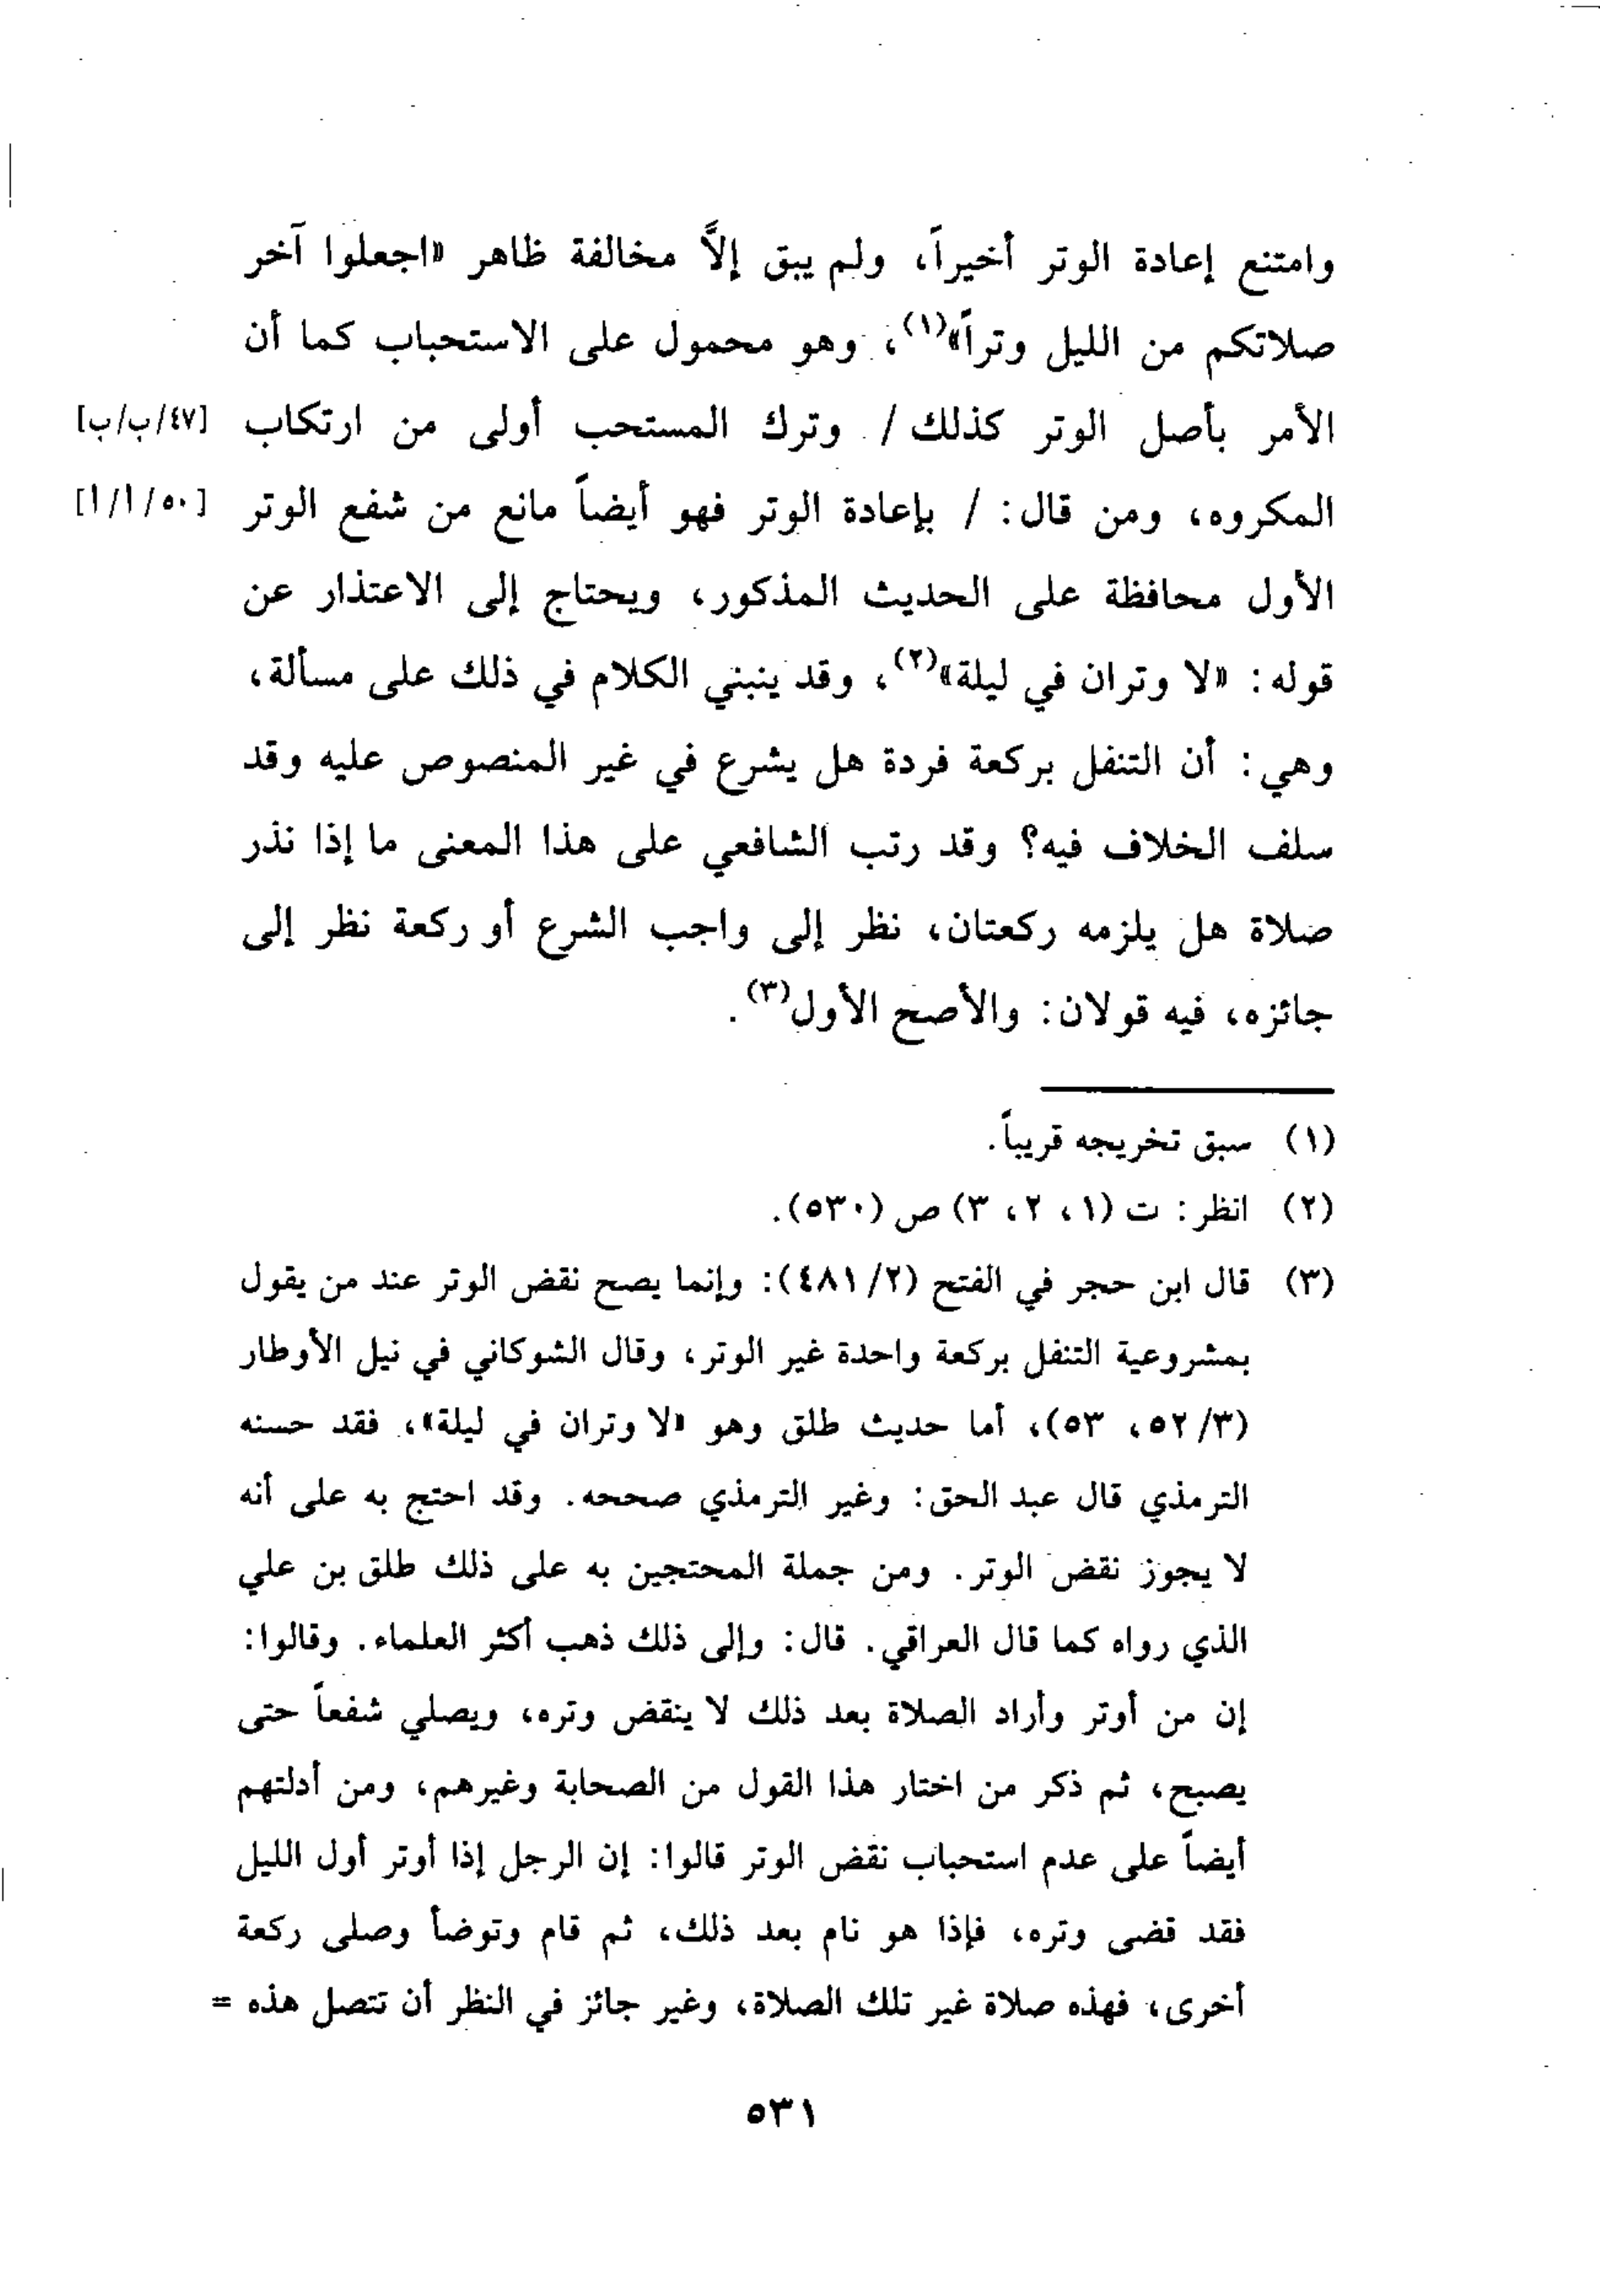 وامتنع إعادة الوتر أخيراً، ولم يبق إلاَّ مخالفة ظاهر «اجعلوا آخر
صلاتكم من الليل وتراً»(١)، وهو محمول على الاستحباب كما أن
الأمر بأصل الوتر كذلك / وترك المستحب أولى من ارتكاب [٤٧/ب/ب]
المكروه، ومن قال: / بإعادة الوتر فهو أيضاً مانع من شفع الوتر [٥٠/أ/أ]
الأول محافظة على الحديث المذكور، ويحتاج إلى الاعتذار عن
قوله: «لا وتران في ليلة»(٢)، وقد ينبني الكلام في ذلك على مسألة،
وهي: أن التنفل بركعة فردة هل يشرع في غير المنصوص عليه وقد
سلف الخلاف فيه؟ وقد رتب الشافعي على هذا المعنى ما إذا نذر
صلاة هل يلزمه ركعتان، نظر إلى واجب الشرع أو ركعة نظر إلى
جائزه، فيه قولان: والأصح الأول(٣).
(١) سبق تخريجه قريباً.
(٢) انظر: ت (١، ٢، ٣) ص (٥٣٠).
(٣) قال ابن حجر في الفتح (٤٨١/٢): وإنما يصح نقض الوتر عند من يقول
بمشروعية التنفل بركعة واحدة غير الوتر، وقال الشوكاني في نيل الأوطار
(٥٢/٣، ٥٣)، أما حديث طلق وهو «لا وتران في ليلة»، فقد حسنه
الترمذي قال عبد الحق: وغير الترمذي صححه. وقد احتج به على أنه
لا يجوز نقض الوتر. ومن جملة المحتجين به على ذلك طلق بن علي
الذي رواه كما قال العراقي. قال: وإلى ذلك ذهب أكثر العلماء. وقالوا:
إن من أوتر وأراد الصلاة بعد ذلك لا ينقض وتره، ويصلي شفعاً حتى
يصبح، ثم ذكر من اختار هذا القول من الصحابة وغيرهم، ومن أدلتهم
أيضاً على عدم استحباب نقض الوتر قالوا: إن الرجل إذا أوتر أول الليل
فقد قضى وتره، فإذا هو نام بعد ذلك، ثم قام وتوضأ وصلى ركعة
أخرى، فهذه صلاة غير تلك الصلاة، وغير جائز في النظر أن تتصل هذه =
٥٣١